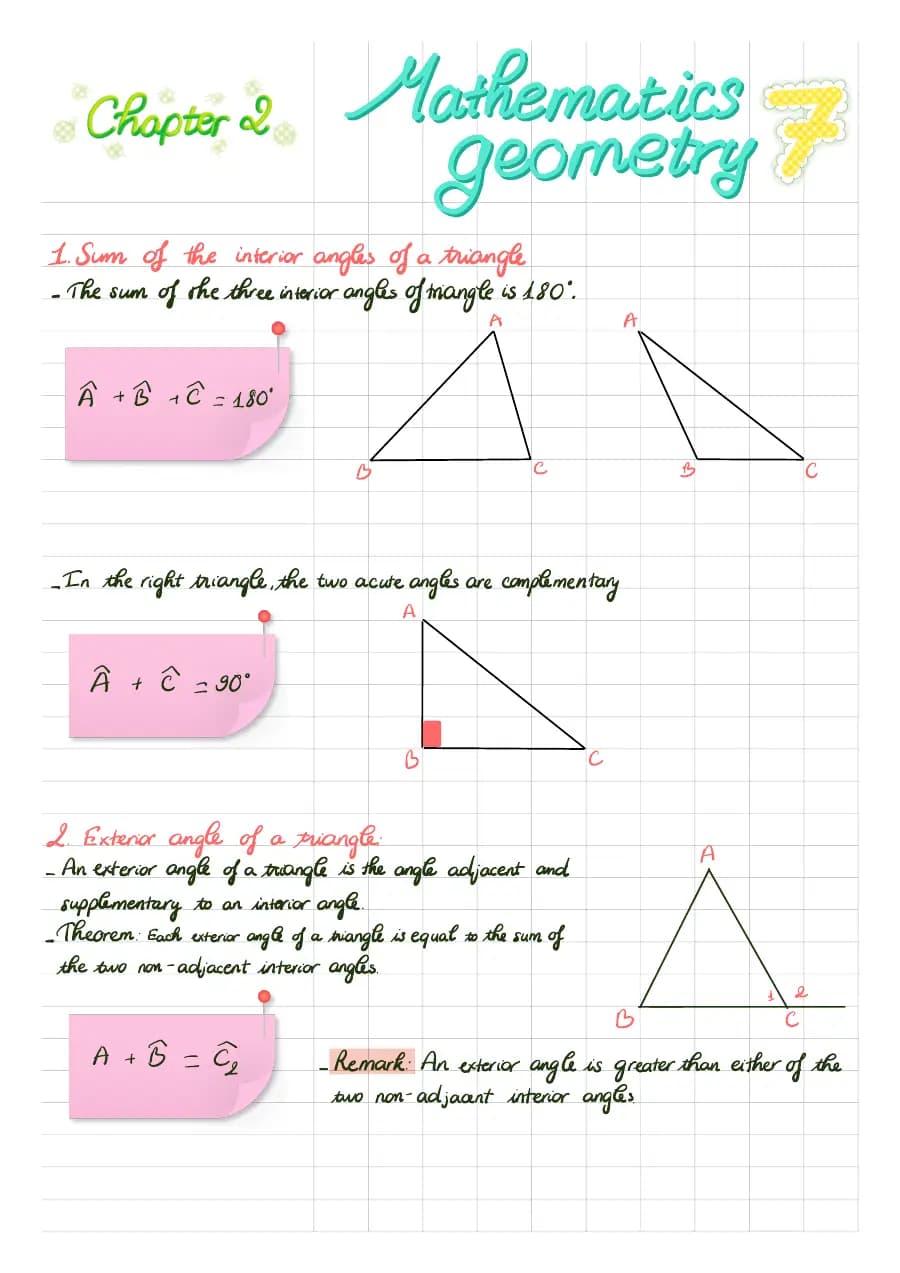 Chapter 2
Mathematics
geometry 7
1. Sum of the interior angles of a triangle
- The sum of rhe three interior angles of triangle is 180°.
Â + B̂ + Ĉ = 180°
A
B
C
A
B
C
- In the right triangle, the two acute angles are complementary
Â + Ĉ = 90°
A
B
C
2. Exterior angle of a triangle:
- An exterior angle of a triangle is the angle adjacent and
supplementary to an interior angle.
- Theorem: Each exterior angle of a triangle is equal to the sum of
the two non-adjacent interior angles.
A
1 2
B
C
A + B̂ = Ĉ₂
- Remark: An exterior angle is greater than either of the
two non-adjacent interior angles.